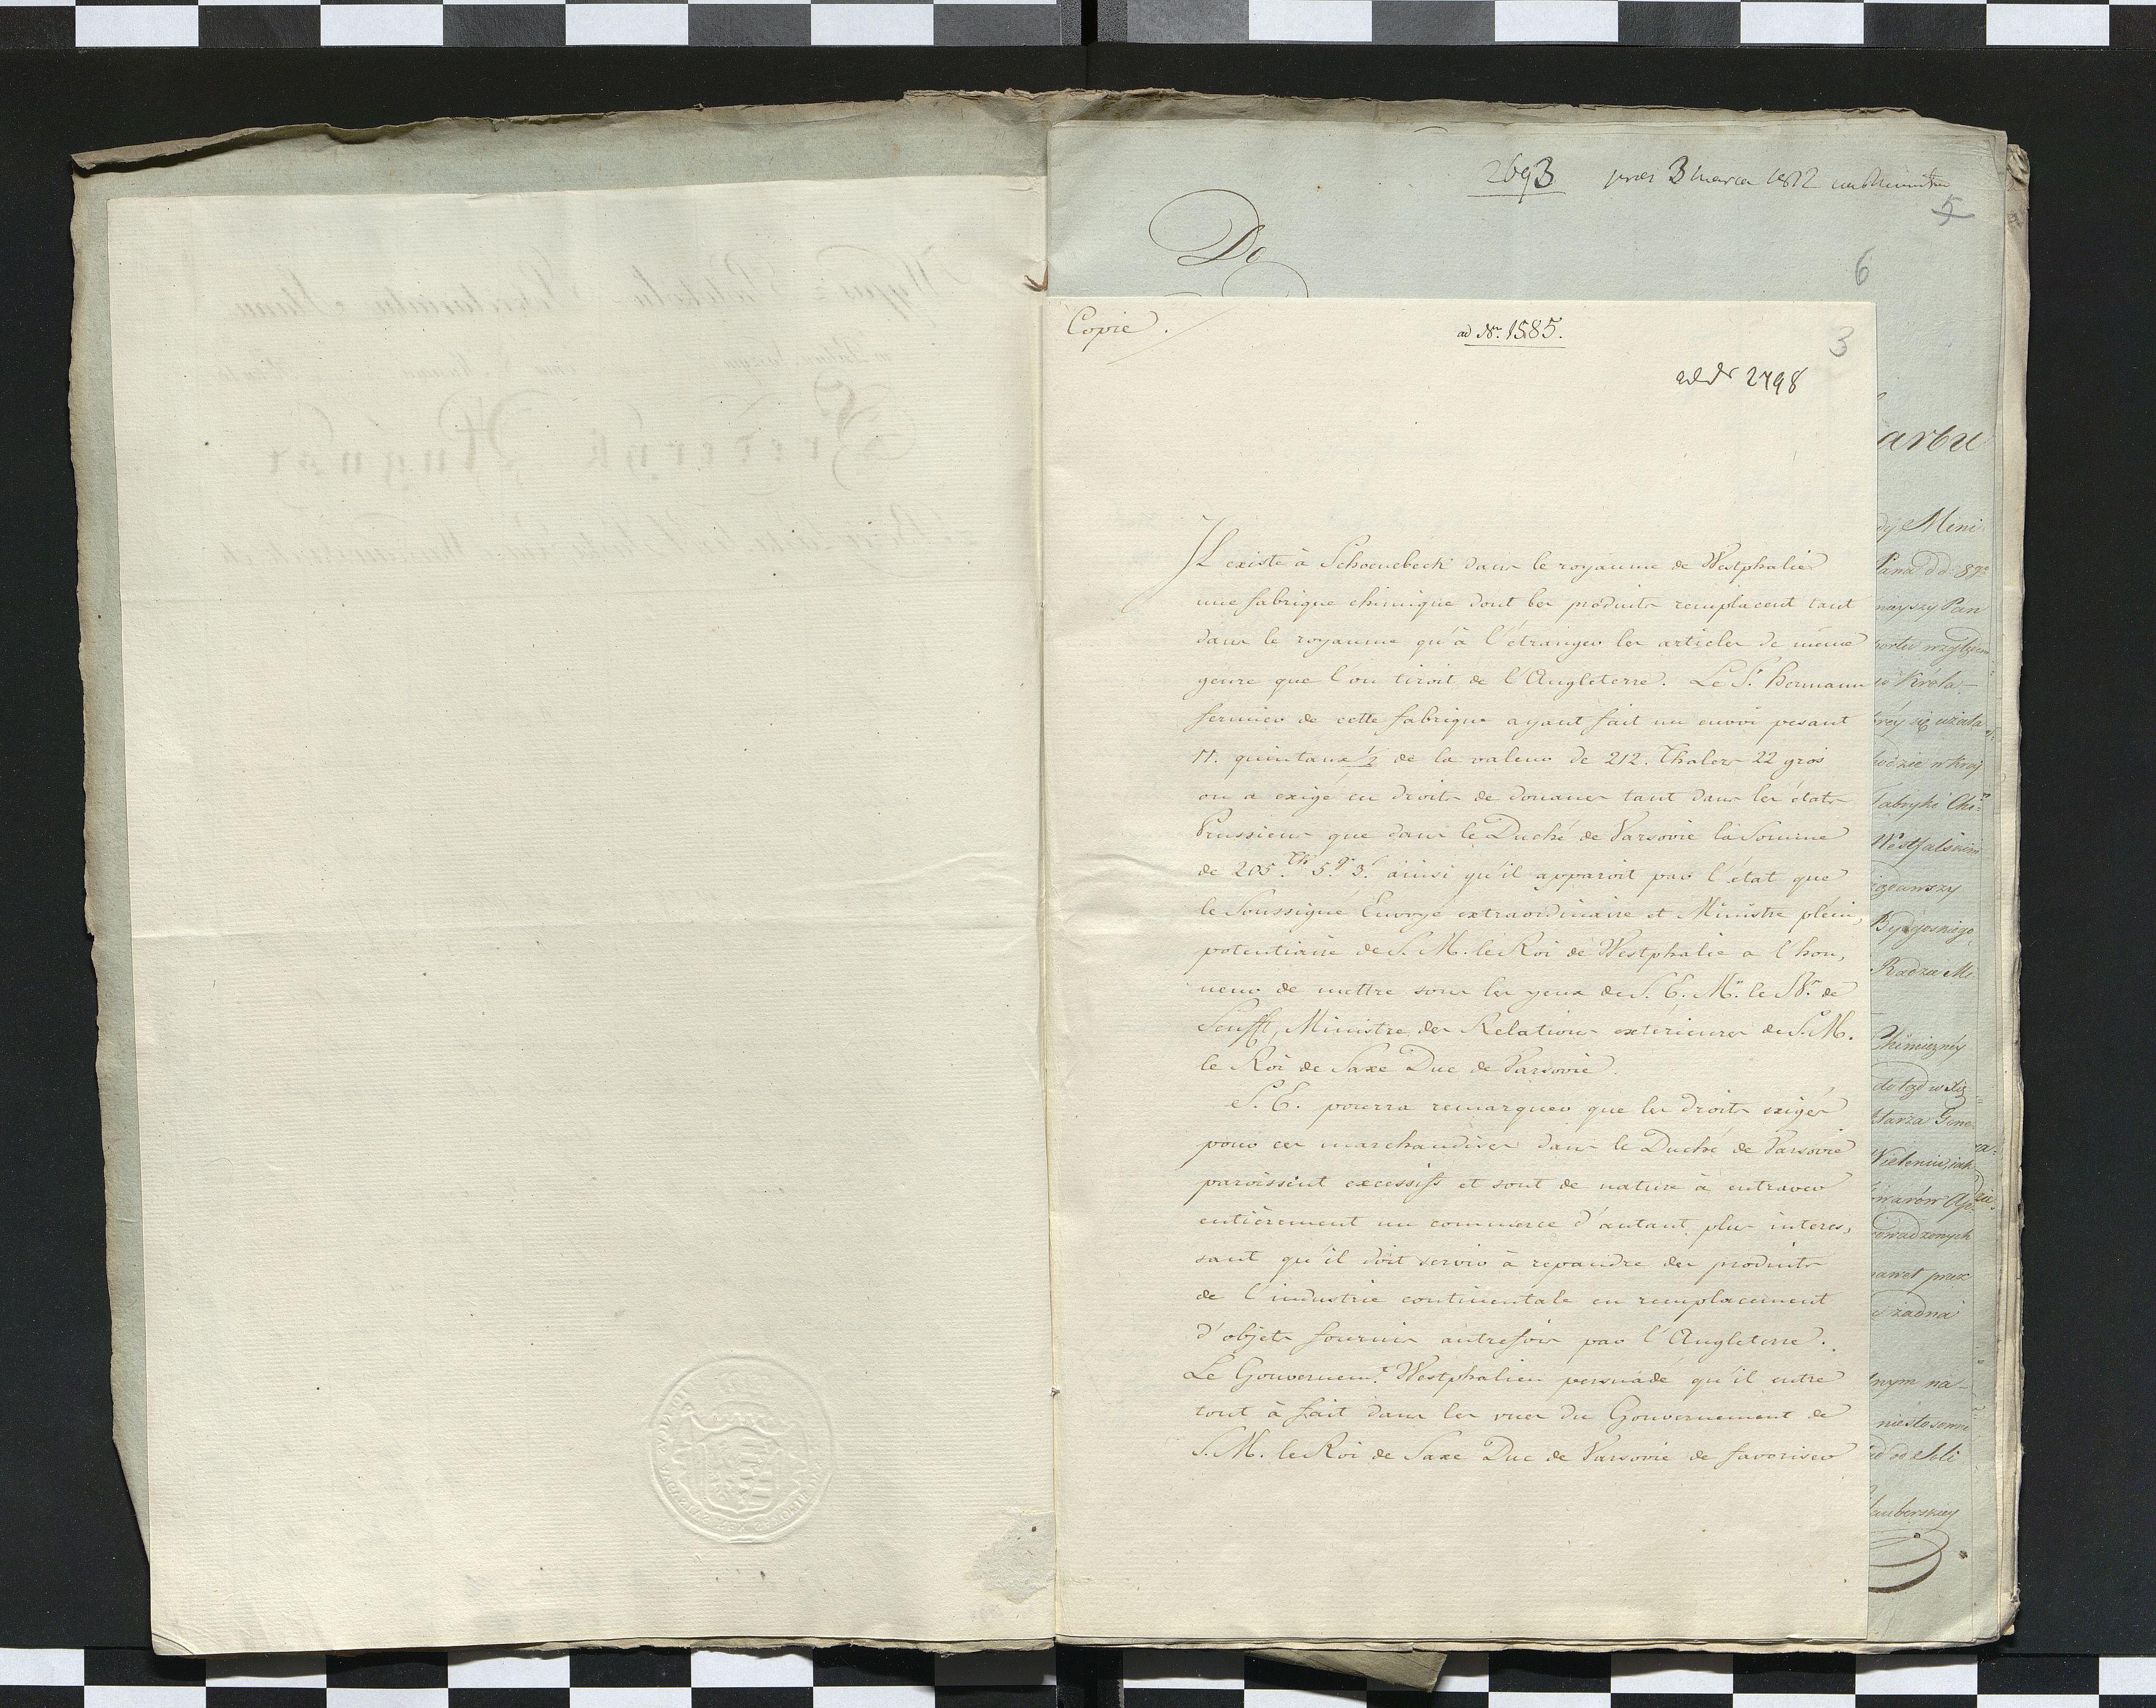 2693 3 marca 1812
5
Do
6
Copie.
ad Nr. 1585.
3
ad Nr 2798
arbu
Il existe à Schoenebeck dans le royaume de Westphalie
une fabrique chimique dont les produits remplacent tant
dans le royaume qu'à l'étranger les articles de même
genre que l'on tiroit de l'Angleterre. Le Sr. Hermann
fermier de cette fabrique ayant fait un envoi pesant
11. quintaux ½ de la valeur de 212. Thalers 22 gros
on a exigé en droits de douanes tant dans les états
Prussiens que dans le Duché de Varsovie la Somme
de 205.Th 5.g 3. ainsi qu'il apparoit par l'état que
le Soussigné Envoyé extraordinaire et Ministre pléni,
potentiaire de S. M. le Roi de Westphalie a l'hon,
neur de mettre sous les yeux de S. E. Mr. le Br. de
Senfft, Ministre des Relations extérieures de S. M.
le Roi de Saxe Duc de Varsovie.
S. E. pourra remarquer que les droits exigés
pour ces marchandises dans le Duché de Varsovie
paroissent excessifs et sont de nature à entraver
entièrement un commerce d'autant plus interes,
sant qu'il doit servir à repandre des produits
de l'industrie continentale en remplacement
d'objets fournis autrefois par l'Angleterre.
Le Gouvernemt. Westphalien persuadé qu'il entre
tout à fait dans les vues du Gouvernement de
S. M. le Roi de Saxe Duc de Varsovie de favoriser
dy Mini
Pana
Pan
Króla
się
w Kray
Fabryki Chi=
Westfalskim
Bydgoskiego
Radzca
Chimiczney
prowadzonych
nawet przez
żadna
nym na-